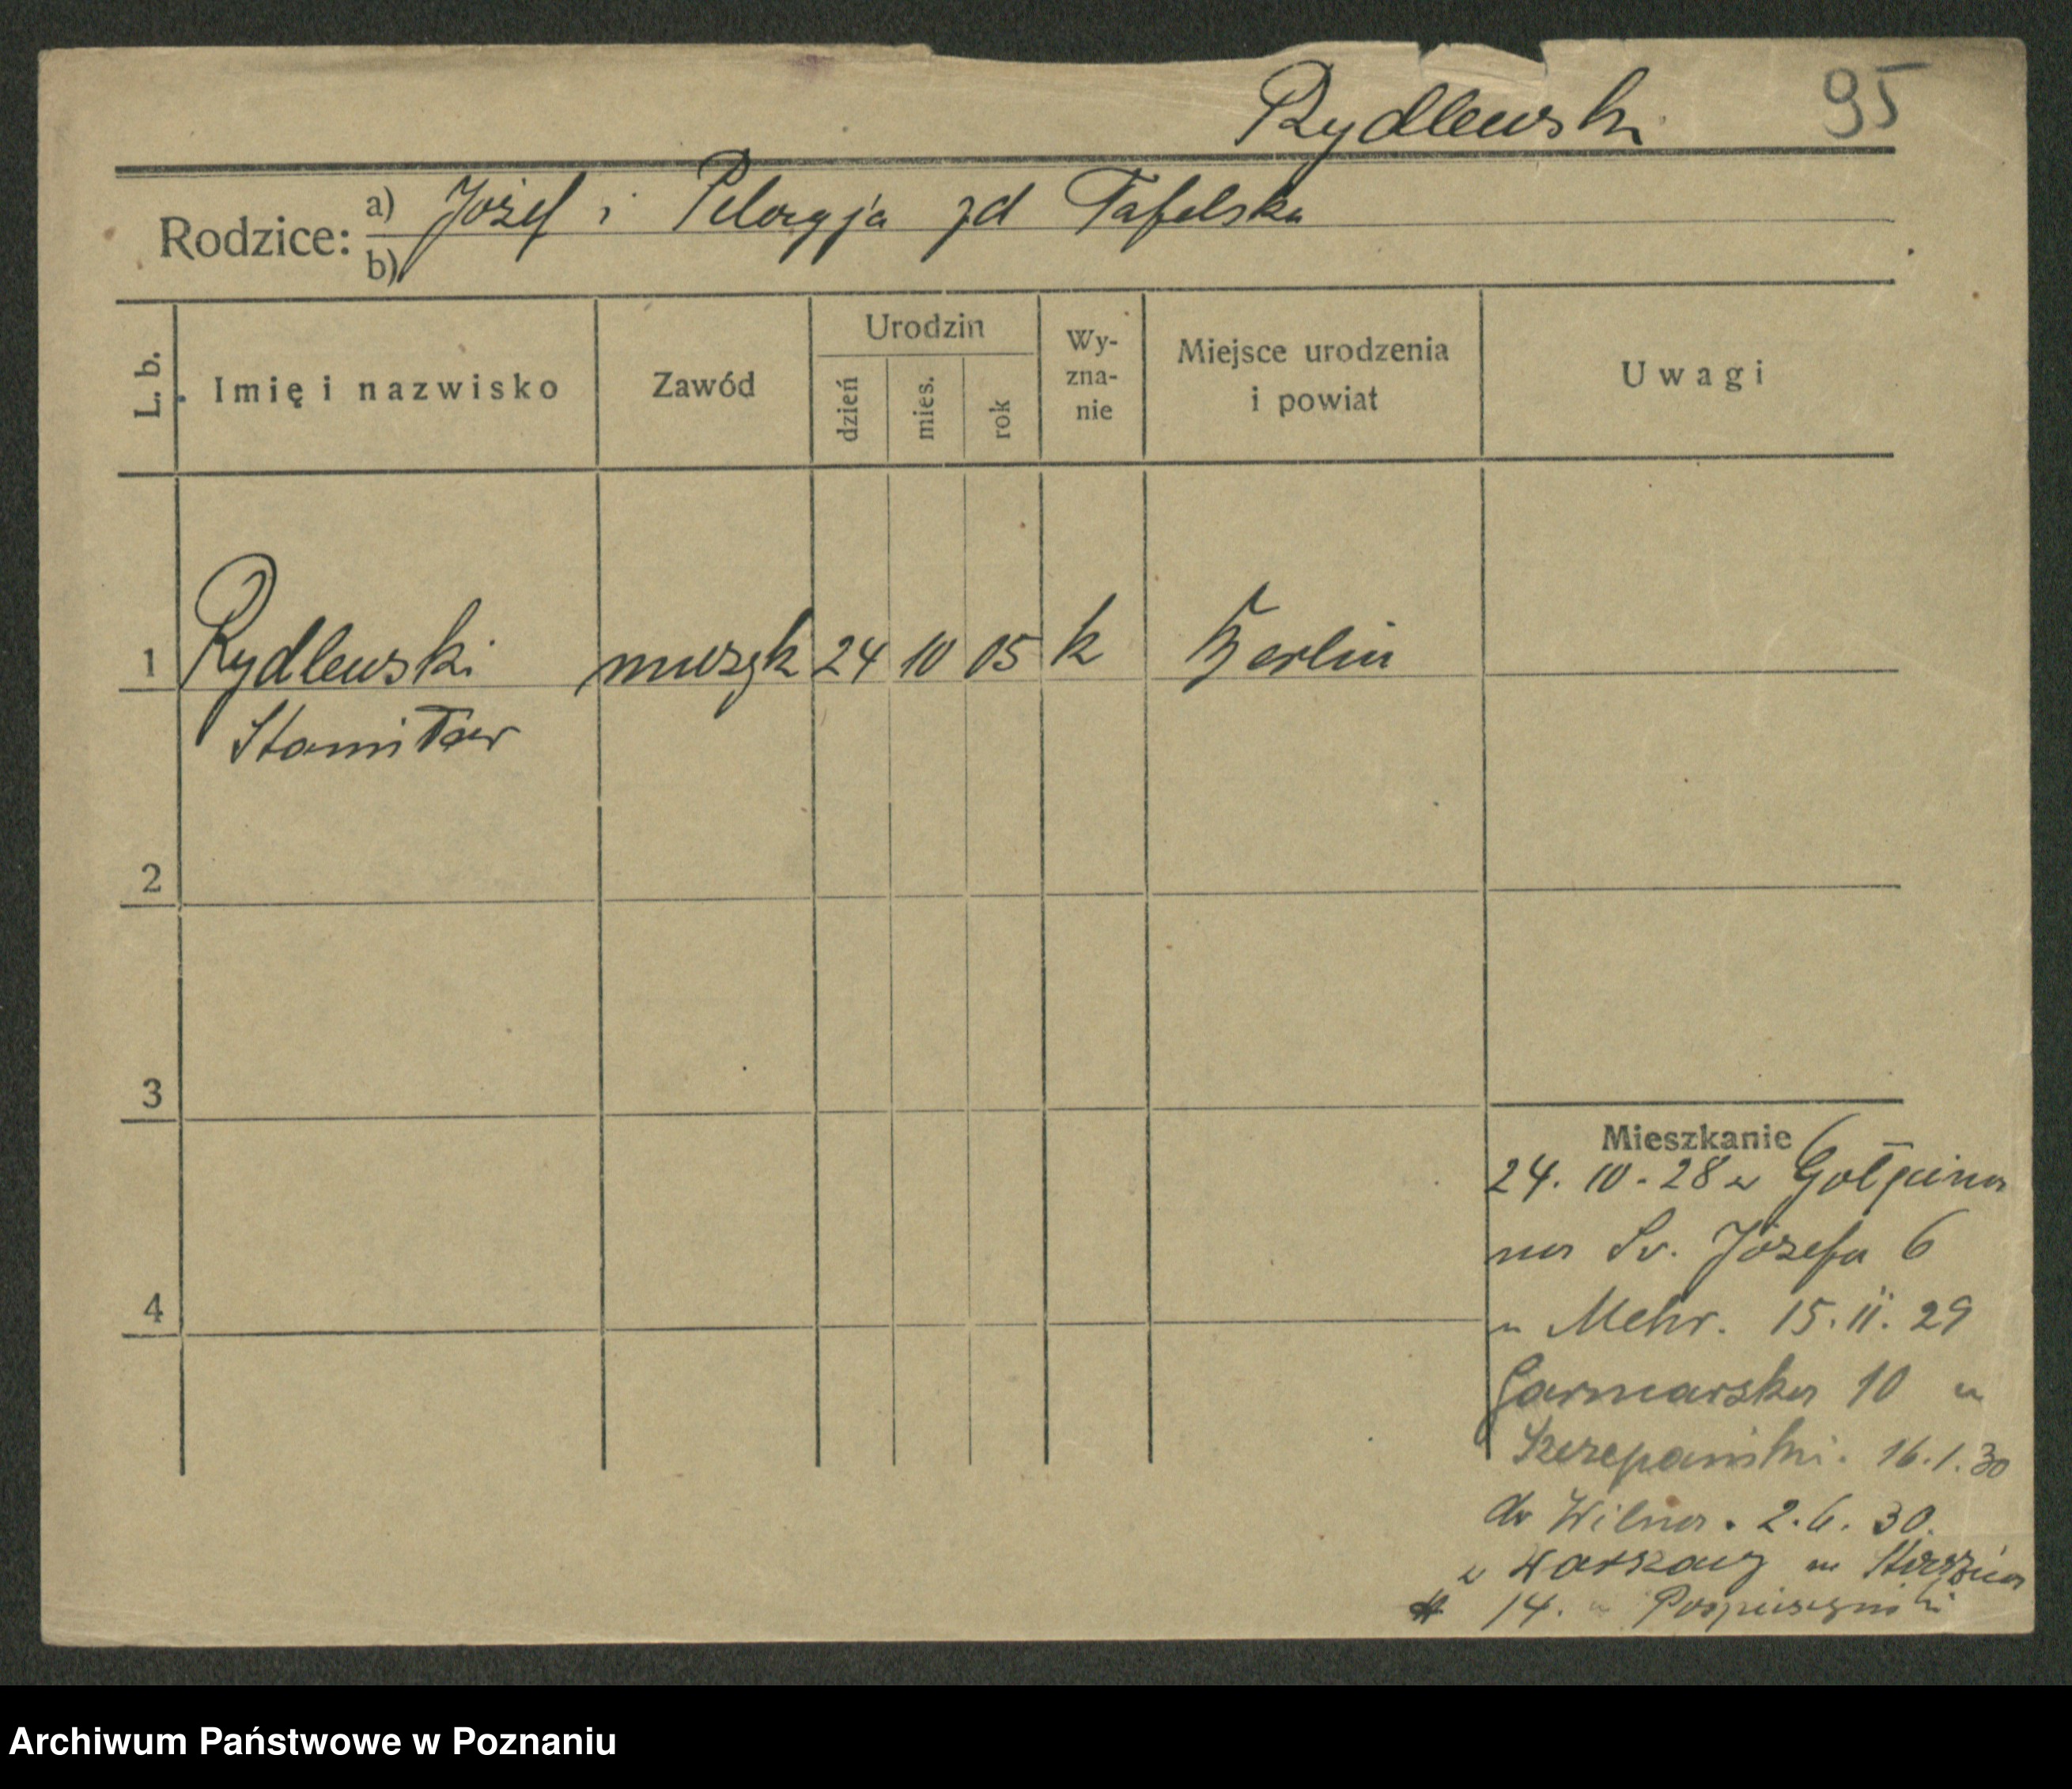 Rydlewski 95
Rodzice: a) Józef i Pelagja zd Tafelska
b)
L. b. Imię i nazwisko Zawód Urodzin dzień mies. rok Wy-zna-nie Miejsce urodzenia i powiat Uwagi
1 Rydlewski muzyk 24 10 05 k Berlin
Stanisław
2
3
4
Mieszkanie
24. 10. 28 w
na Św. Józefa 6
u Mehr. 15. II. 29
Garncarska 10 u
Szczepański. 16. 1. 30
do Wilna. 2. 6. 30.
z Warszawy na
14. u
Archiwum Państwowe w Poznaniu